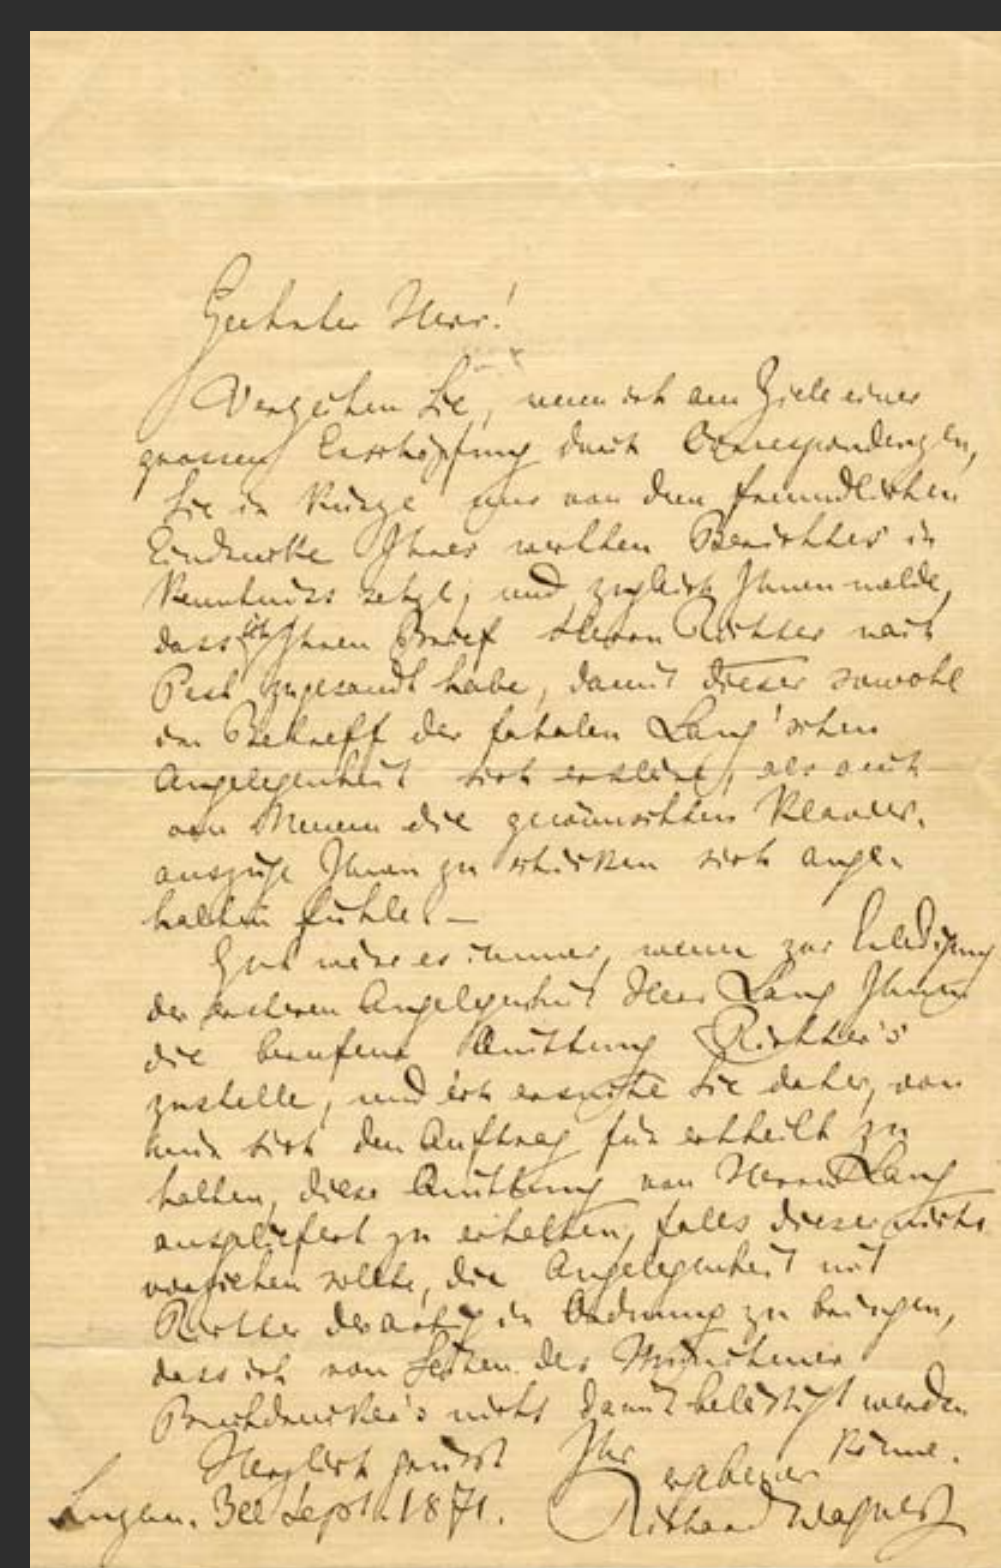 Geehrter Herr!
Verzeihen Sie, wenn ich am Ziele einer
grossen Erschöpfung durch Correspondenzen,
Sie in Kürze nur von dem freundlichen
Eindrucke Ihres werthen Berichtes in
Kenntniss setze, und zugleich Ihnen melde,
dass ich Ihren Brief Herrn Richter nach
Pest zugesandt habe, damit dieser sowohl
im Betreff der fatalen Lang'schen
Angelegenheit sich erkläre, als auch
von Neuem die gewünschten Klavier-
auszüge Ihnen zu schicken sich ange-
halten fühle. —
Gut wäre es immer, wenn zur Erledigung
der ersteren Angelegenheit Herr Lang Ihnen
die Quittung Richter's
zustelle, und ich ersuche Sie daher, von
mir sich den Auftrag für ertheilt zu
halten, diese Quittung von Herrn Lang
ausgeliefert zu erhalten, falls dieser nicht
vorziehen sollte, die Angelegenheit mit
Richter derartig in Ordnung zu bringen,
dass ich von Seiten des Münchener
Buchdrucker's nicht damit belästigt werden
könne.
Herzlich grüsst Ihr
ergebener
Luzern. 3 Sept. 1871. Richard Wagner